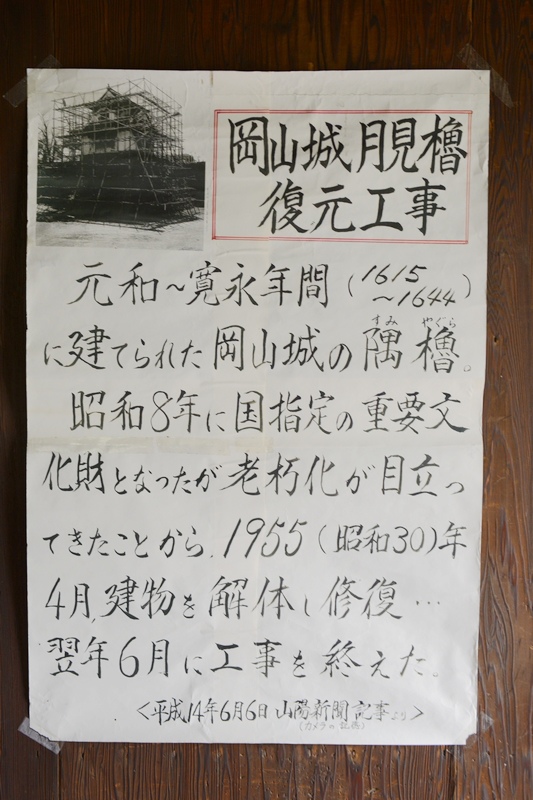 岡山城月見櫓
復元工事
元和～寛永年間（1615
～1644）
すみ やぐら
に建てられた岡山城の隅櫓。
昭和8年に国指定の重要文
化財となったが老朽化が目立っ
てきたことから、1955（昭和30）年
4月、建物を解体し修復…
翌年6月に工事を終えた。
＜平成14年6月6日 山陽新聞記事より＞
（カメラの記憶）